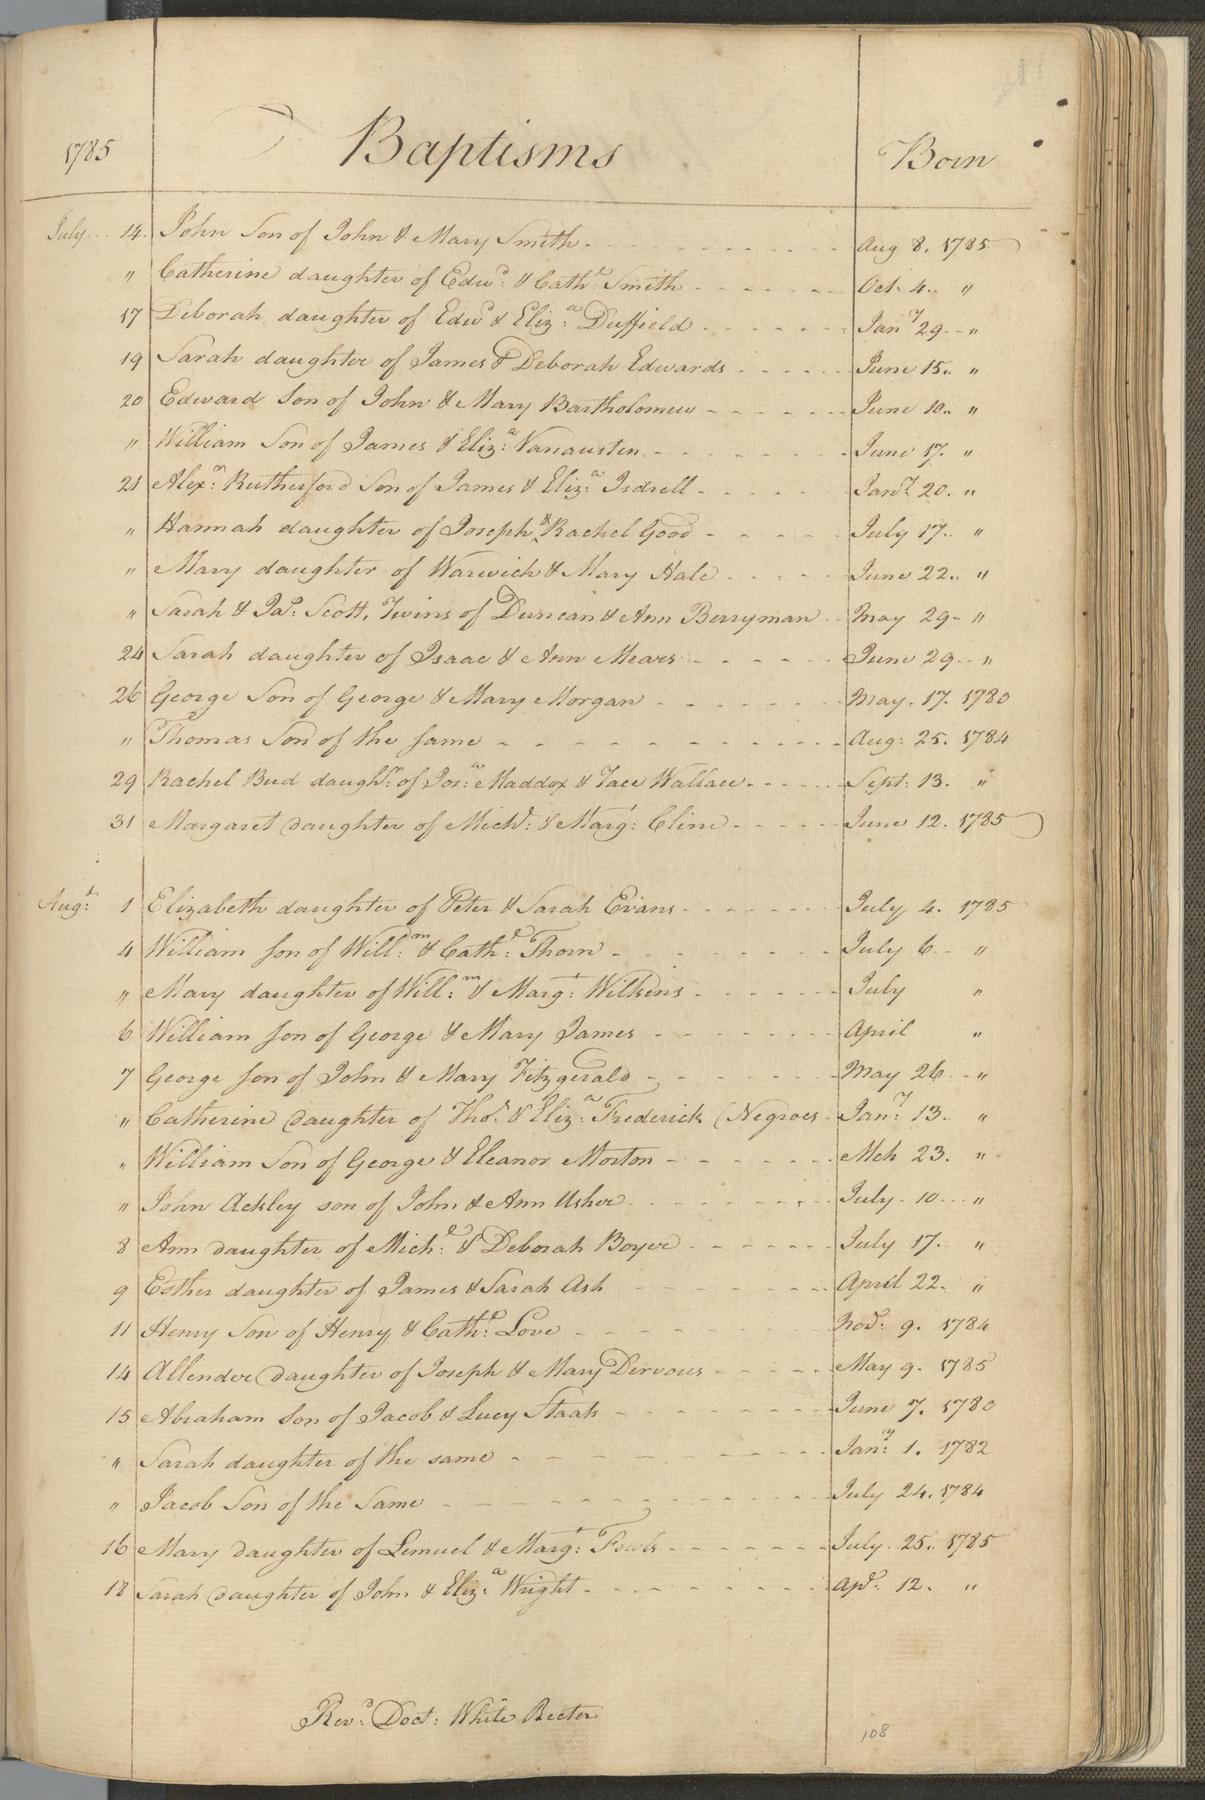 1785 Baptisms Born
July 14. John Son of John & Mary Smith Aug 8, 1785
" Catherine daughter of Edwd: & Cathe: Smith Oct. 4. "
17 Deborah daughter of Edwd & Eliza: Duffield Jany 29 "
19 Sarah daughter of James & Deborah Edwards June 15. "
20 Edward Son of John & Mary Bartholomew June 10. "
" William Son of James & Eliza: Vanausten June 17. "
21 Alexr: Rutherford Son of James & Eliza: Isdrell Jany. 20. "
" Hannah daughter of Joseph & Rachel Good July 17. "
" Mary daughter of Warwick & Mary Hale June 22. "
" Sarah & Jas: Scott, Twins of Duncan & Ann Berryman May 29 "
24 Sarah daughter of Isaac & Ann Mears June 29 "
26 George Son of George & Mary Morgan May. 17. 1780
" Thomas Son of the same Aug: 25. 1784
29 Rachel Bud daughr: of Josa: Maddox & Tace Wallace Sept: 13. "
31 Margaret daughter of Michl: & Margt: Cline June 12. 1785
Augt: 1 Elizabeth daughter of Peter & Sarah Evans July 4. 1785
4 William son of Willm: & Cathe: Thorn July 6 "
" Mary daughter of Willm: & Margt: Wilkins July "
6 William son of George & Mary James April "
7 George son of John & Mary Fitzgerald May 26 "
" Catherine daughter of Thos. & Eliza: Frederick (Negroes Jany: 13 "
" William Son of George & Eleanor Morton Mch 23. "
" John Ackley son of John & Ann Usher July 10 "
8 Ann daughter of Michl: & Deborah Boyer July 17. "
9 Esther daughter of James & Sarah Ash April 22. "
11 Henry Son of Henry & Cathe: Love Novr: 9. 1784
14 Allender daughter of Joseph & Mary Dervous May 9. 1785
15 Abraham Son of Jacob & Lucy Staats June 7. 1780
" Sarah daughter of the same Jany: 1. 1782
" Jacob Son of the Same July 24. 1784
16 Mary daughter of Lemuel & Margt: July 25. 1785
18 Sarah daughter of John & Eliza: Wright Apl: 12. "
Revd: Doct: White Rector
108